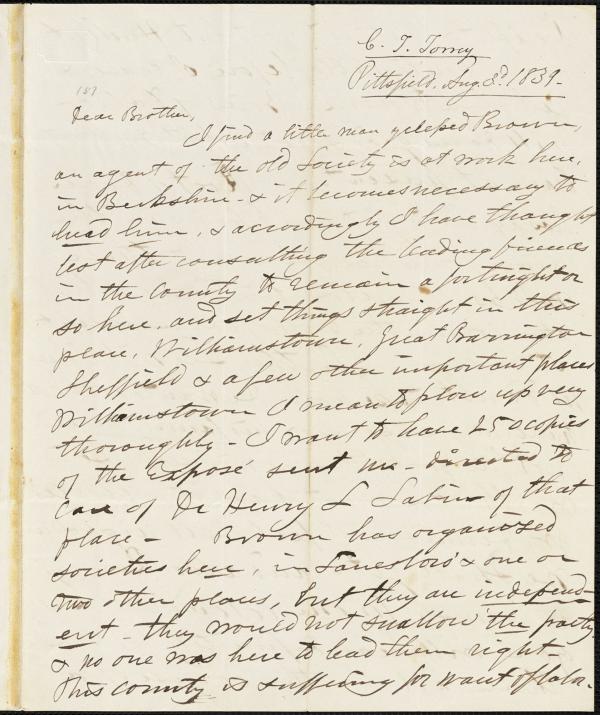 C. T. Torrey
Pittsfield, Aug. 3d. 1839.
157
Dear Brother,
I find a little man yclep'd Brown,
an agent of the old Society is at work here,
in Berkshire - & it becomes necessary to
head him, & accordingly I have thought
best after consulting the leading friends
in the County to remain a fortnight or
so here, and set things straight in this
place, Williamstown, Great Barrington
Sheffield & a few other important places
Williamstown I mean to plow up very
thoroughly - I want to have 250 copies
of the Exposé sent me - directed to
care of Dr Henry L Sabin of that
place - Brown has organized
societies here, in Lanesboro' & one or
two other places, but they are independ-
ent - they would not swallow the party
& no one was here to lead them right -
This county is suffering for want of labor.